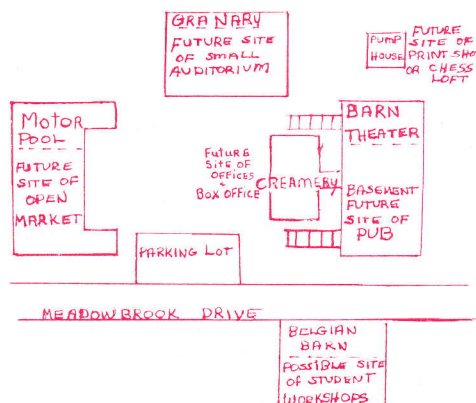 GRANARY
FUTURE SITE
OF SMALL
AUDITORIUM
PUMP
HOUSE
FUTURE
SITE OF
PRINT SHO
OR CHESS
LOFT
MOTOR
POOL
FUTURE
SITE OF
OPEN
MARKET
FUTURE
SITE OF
OFFICES
+
BOX OFFICE
CREAMERY
BARN
THEATER
BASEMENT
FUTURE
SITE OF
PUB
PARKING LOT
MEADOWBROOK DRIVE
BELGIAN
BARN
POSSIBLE SITE
OF STUDENT
WORKSHOPS